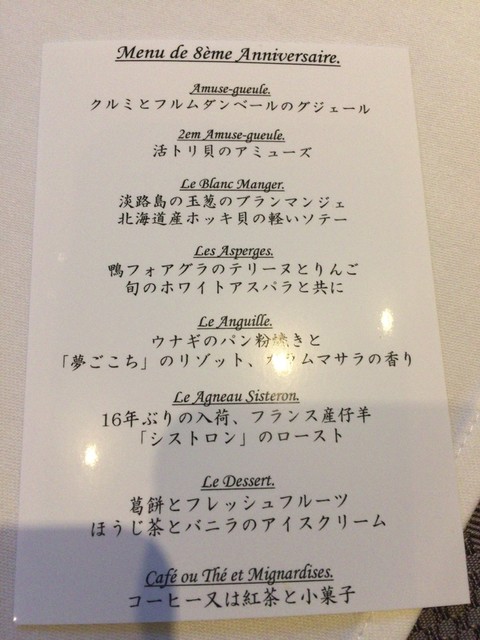 Menu de 8ème Anniversaire.
Amuse-gueule.
クルミとフルムダンベールのグジェール
2em Amuse-gueule.
活トリ貝のアミューズ
Le Blanc Manger.
淡路島の玉葱のブランマンジェ
北海道産ホッキ貝の軽いソテー
Les Asperges.
鴨フォアグラのテリーヌとりんご
旬のホワイトアスパラと共に
Le Anguille.
ウナギのパン粉焼きと
「夢ごこち」のリゾット、ガラムマサラの香り
Le Agneau Sisteron.
16年ぶりの入荷、フランス産仔羊
「シストロン」のロースト
Le Dessert.
葛餅とフレッシュフルーツ
ほうじ茶とバニラのアイスクリーム
Café ou Thé et Mignardises.
コーヒー又は紅茶と小菓子